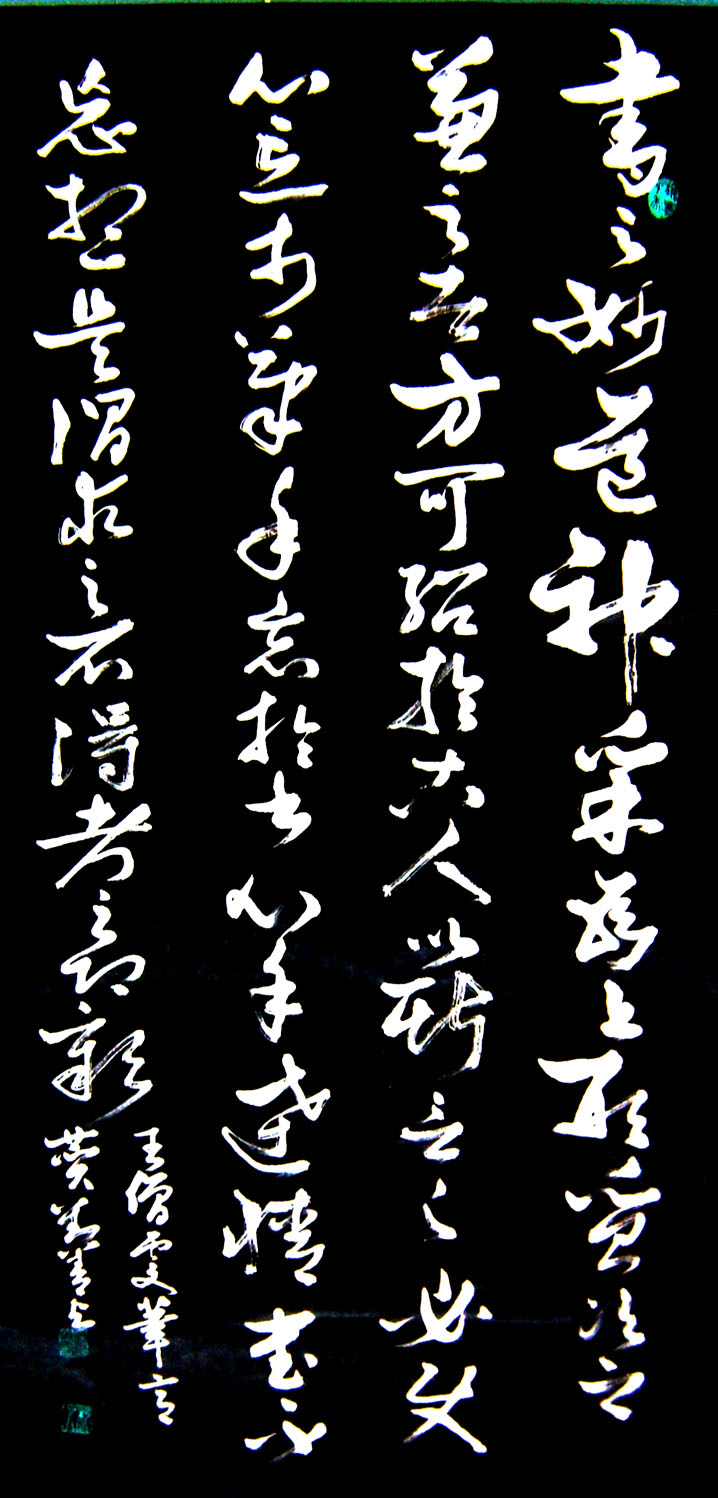 書之妙道神采為上形質次之
兼之者方可紹於古人以斯言之必使
心忘於筆手忘於書心手達情書不
忘想是謂求之不得考之即彰
王僧虔筆意
贊